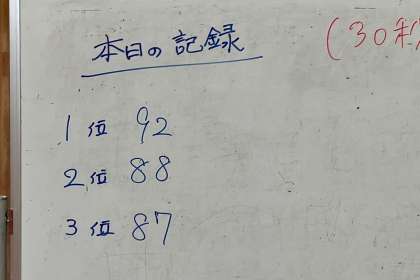 本日の記録
(30秒
1位 92
2位 88
3位 87